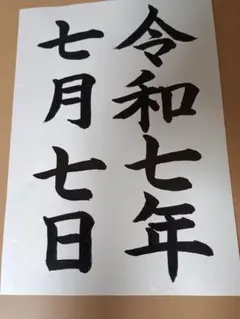 令和七年
七月七日